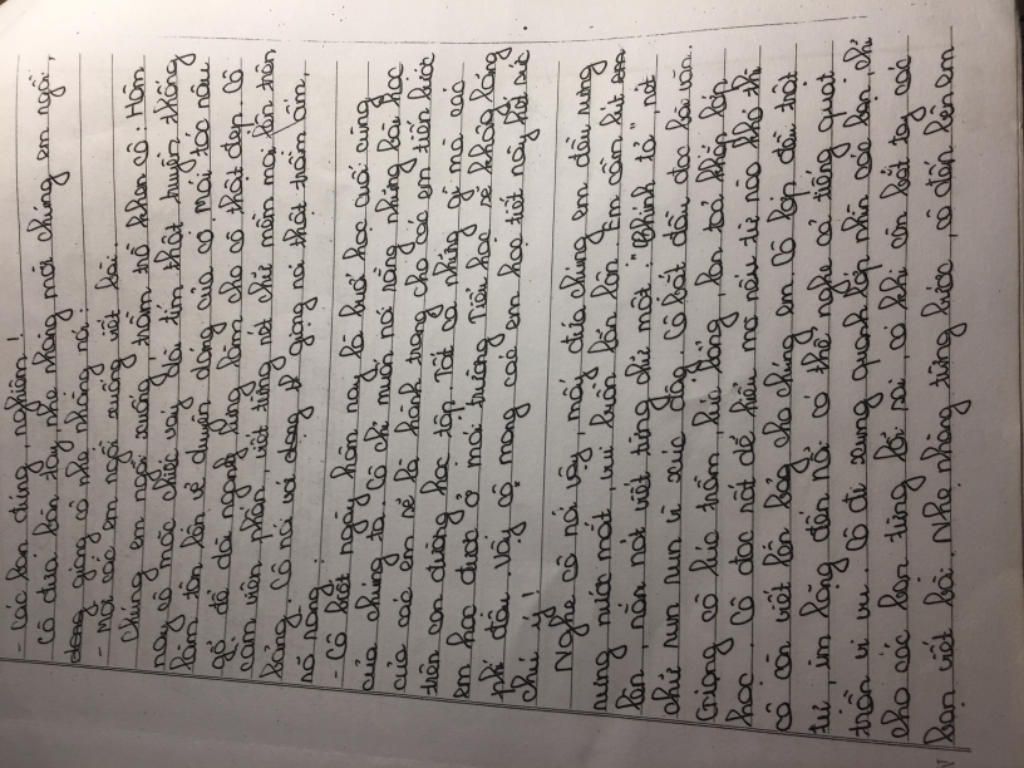 - Các bạn đứng, nghiêm!
Cô đưa bàn tay, nhẹ nhàng mời chúng em ngồi,
dọng giảng cô nhẹ nhàng nói:
- Mời các em ngồi xuống viết bài.
Chúng em ngồi xuống, trầm trồ khen cô. Hôm
nay cô mặc chiếc váy dài tím thật truyền thống
làm tôn lên vẻ duyên dáng của cô. Mái tóc nâu
gỗ đổ dài ngang lưng làm cho cô thật đẹp. Cô
cầm viên phấn, viết từng nét chữ mềm mại lên trên
bảng. Cô nói với dọng giọng nói thật trầm ấm,
nó nóng:
- Cô biết ngày hôm nay là buổi học cuối cùng
của chúng ta. Cô chỉ muốn nói rằng những bài học
của các em sẽ là hành trang cho các em tiến bước
trên con đường học tập. Tất cả những gì mà các
em học được ở mái trường Tiểu học sẽ không lãng
phí đâu. Vậy cô mong các em học tiết này thật chú
chú ý!
Nghe cô nói vậy, mấy đứa chúng em đều rưng
rưng nước mắt, vui buồn lẫn lộn. Em cầm bút lên
lên, nắn nót viết từng chữ một. "Chính tả", nét
chữ run run vì xúc động. Cô bắt đầu đọc bài văn.
Giọng cô lúc trầm, lúc bổng, lan toả khắp lớp
học. Cô đọc rất dễ hiểu mà nếu từ nào khó thì
cô còn viết lên bảng cho chúng em. Cả lớp đều trật
tự, im lặng đến nỗi có thể nghe cả tiếng quạt
trần vi vu. Cô đi xung quanh lớp nhìn các bạn, chỉ
cho các bạn từng lỗi sai, có khi còn bắt tay các
bạn viết bài. Nhẹ nhàng từng bước, cô đến bên em